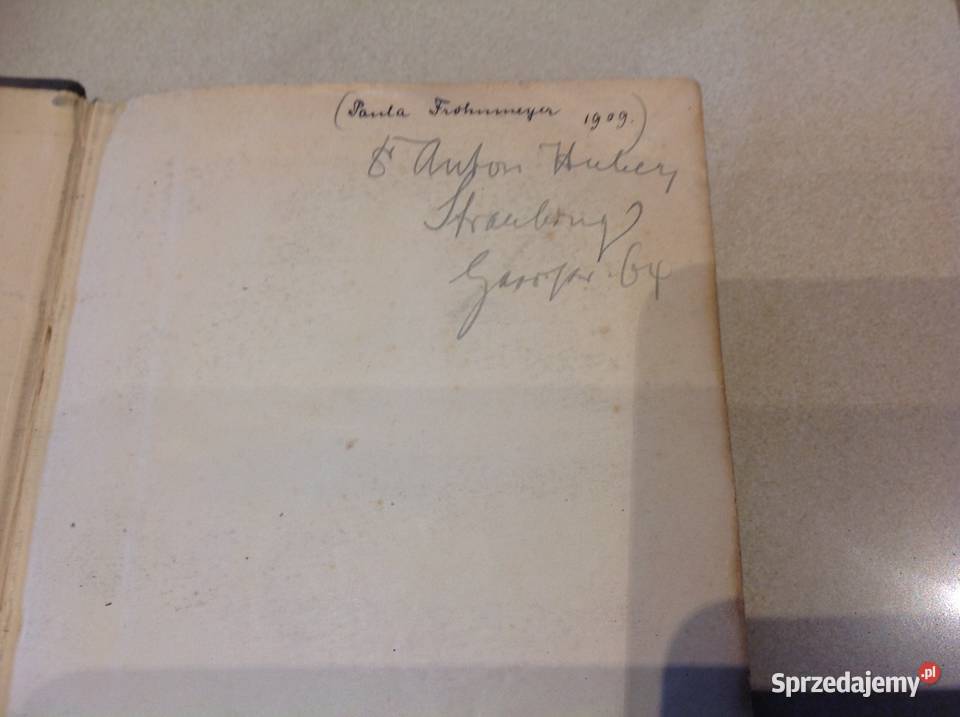 (Paula Frohnmeyer 1909.)
Anton Huber,
Straubing
64
Sprzedajemy.pl